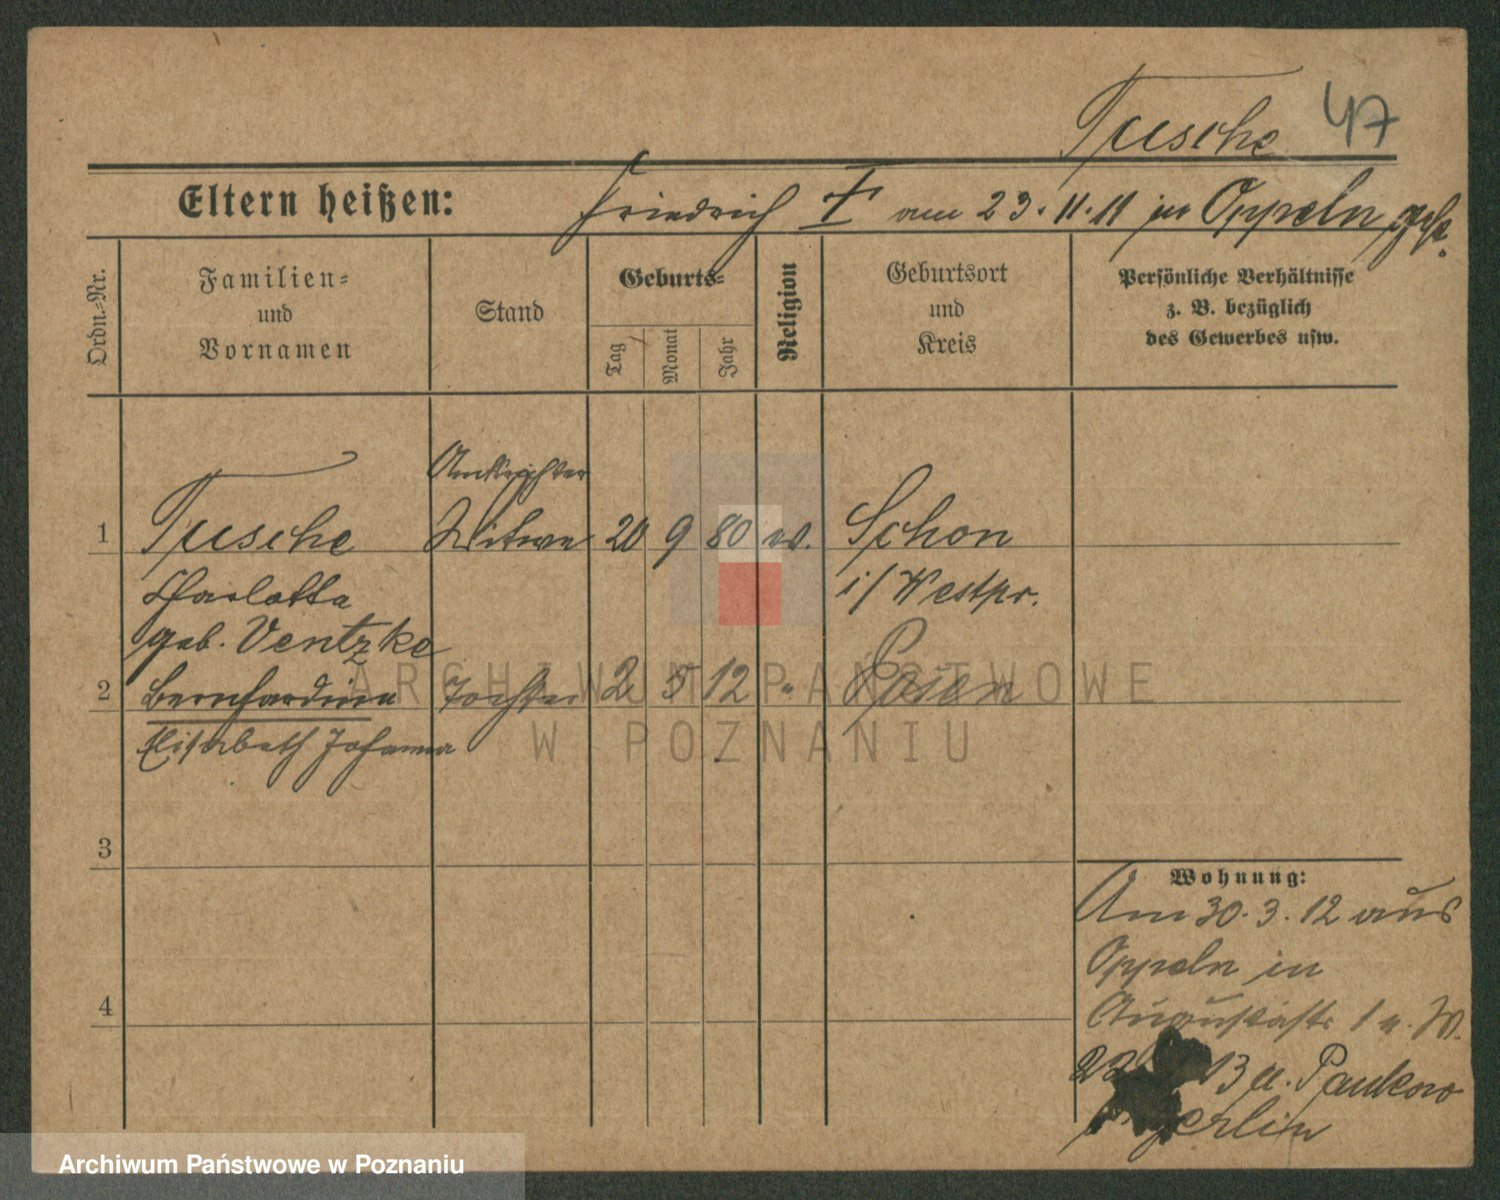 Tusche 47
Eltern heißen: Friedrich † am 23.11.11 in Oppeln gest.
Ordn.-Nr.
Familien-
und
Vornamen
Stand
Geburts-
Tag
Monat
Jahr
Religion
Geburtsort
und
Kreis
Persönliche Verhältnisse
z. B. bezüglich
des Gewerbes usw.
Amtsrichter
1 Tusche Witwe 20 9 80 ev. Schon
Charlotte i/Westpr.
geb. Ventzke
2 Bernhardine Tochter 2 5 12 " Posen
Elisabeth Johanna
3
4
Wohnung:
Am 30.3.12 aus
Oppeln in
Augustastr 1 u. W.
22 13 n. Pankow
Berlin
ARCHIWUM PAŃSTWOWE
W POZNANIU
Archiwum Państwowe w Poznaniu